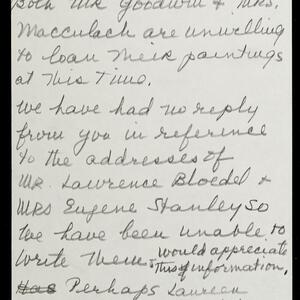 Both Mr Goodwin & Mrs.
Macculach are unwilling
to loan their paintings
at this time.
We have had no reply
from you in reference
to the addresses of
Mr. Lawrence Bloedel &
Mrs Eugene Stanley so
we have been unable to
write them & would appreciate
this information.
Has Perhaps Laureen